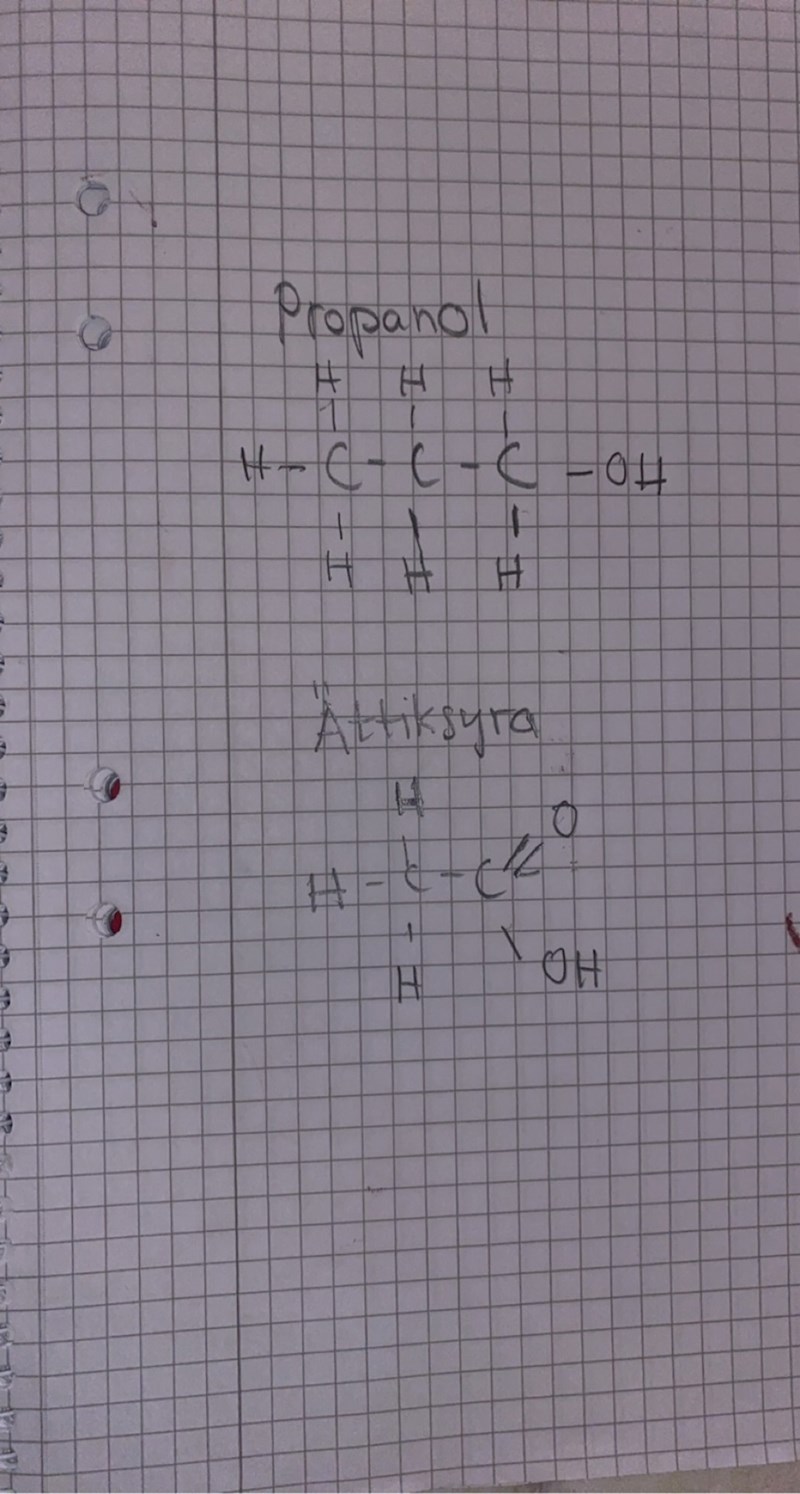 Propanol
H H H
H - C - C - C - OH
H H H
Ättiksyra
H
O
H - C - C
OH
H